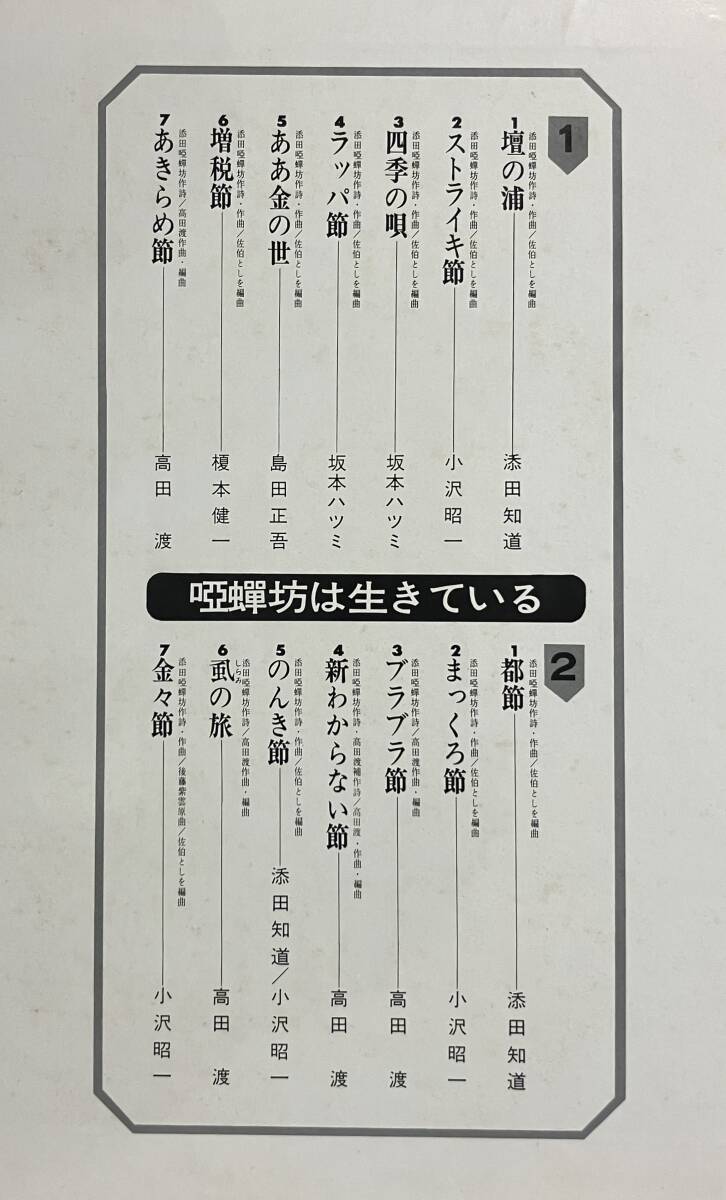 1
1 壇の浦
添田啞蟬坊作詩・作曲／佐伯としを編曲
添田知道
2 ストライキ節
添田啞蟬坊作詩・作曲／佐伯としを編曲
小沢昭一
3 四季の唄
添田啞蟬坊作詩・作曲／佐伯としを編曲
坂本ハツミ
4 ラッパ節
添田啞蟬坊作詩・作曲／佐伯としを編曲
坂本ハツミ
5 ああ金の世
添田啞蟬坊作詩・作曲／佐伯としを編曲
島田正吾
6 増税節
添田啞蟬坊作詩・作曲／佐伯としを編曲
榎本健一
7 あきらめ節
添田啞蟬坊作詩／高田渡作曲・編曲
高田 渡
啞蟬坊は生きている
2
1 都節
添田啞蟬坊作詩・作曲／佐伯としを編曲
添田知道
2 まっくろ節
添田啞蟬坊作詩・作曲／佐伯としを編曲
小沢昭一
3 ブラブラ節
添田啞蟬坊作詩／高田渡作曲・編曲
高田 渡
4 新わからない節
添田啞蟬坊作詩・高田渡補作詩／高田渡・作曲・編曲
高田 渡
5 のんき節
添田啞蟬坊作詩・作曲／佐伯としを編曲
添田知道／小沢昭一
6 虱の旅
しらみ
添田啞蟬坊作詩／高田渡作曲・編曲
高田 渡
7 金々節
添田啞蟬坊作詩・作曲／後藤紫雲原曲／佐伯としを編曲
小沢昭一